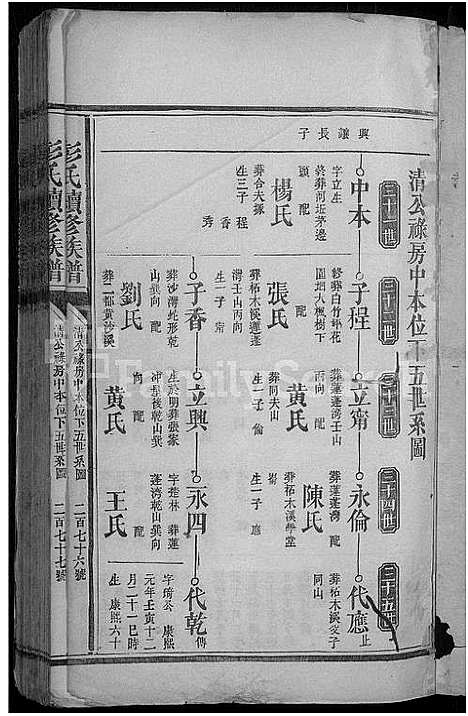 清公祿房中本位下五世系圖
三十一世
三十二世
三十三世
三十四世
三十五世
興讓長子
中本
字立生
終葬河坵茅邊
頭 配
楊氏
葬合夫塚
生三子 程 香 秀
子程
終葬白竹坪花
園烟大楓樹下
配
張氏
葬柘木溪蓮蓬
灣壬山丙向
生一子
立甯
葬蓮蓬灣壬山
丙向 配
黃氏
葬同夫山
生一子 倫
永倫
葬蓮蓬灣
配
陳氏
葬柘木溪學堂
生一子 應
代應止
葬柘木溪父子
同山
子香
葬沙灣蛇形乾
山巽向 配
劉氏
葬二都黄沙溪
立興
生於明葬張家
冲屋後乾山巽
向 配
黄氏
永四
字楚林 葬蓮
蓬灣乾山巽向
配
王氏
代乾傳
字琦公 康熙
元年壬寅十二
月二十一巳時
生 康熙六十
彭氏續修族譜
清公祿房中本位下五世系圖
二百七十六號
彭氏續修族譜
清公祿房中本位下五世系圖
二百七十七號
FamilySearch